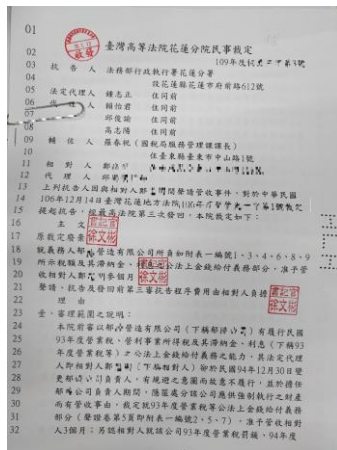 01
02 臺灣高等法院花蓮分院民事裁定
03 109年度抗
04 抗告人 法務部行政執行署花蓮分署
設花蓮縣花蓮市府前路612號
05 法定代理人 鍾志正 住同前
06 代理人 賴怡君 住同前
07 邱俊諭 住同前
08 高志陽 住同前
09 輔佐人 羅春祝(國稅局服務管理課課長)
10 住臺東縣臺東市中山路1號
11 相對人 鄭
12 代理人 邱
13 上列抗告人因與相對人鄭 間聲請管收事件,對於中華民國
14 106年12月14日臺灣花蓮地方法院106年度 裁定
15 提起抗告,經最高法院第三次發回,本院裁定如下:
16 主文
17 原裁定廢棄
18 就義務人 營造有限公司所負如附表一編號1、3、4、6、8、9
19 所示稅額及其滯納金、利息之公法上金錢給付義務部分,准予管
20 收相對人鄭 參個月
21 聲請、抗告及發回前第三審抗告程序費用由相對人負擔
書記官
徐文彬
22 理由
23 壹、審理範圍之說明:
24 本院前審以 營造有限公司(下稱 )有履行民國
25 93年度營業稅、營利事業所得稅及其滯納金、利息(下稱93
26 年度營業稅等)之公法上金錢給付義務之能力,其法定代理
27 人即相對人鄭 (下 相對人)卻於民國94年12月30日變
28 更 公司負責人,有規避之意圖而故意不履行,並於擔任
29 公司負責人期間,隱匿處分該公司應供強制執行之財產
30 而有管收事由,裁定就93年度營業稅等公法上金錢給付義務
31 部分(聲證卷第5頁即附表一編號2、5、7),准予管收相對
32 人3個月;另認相對人就該公司93年度營業稅罰鍰、94年度